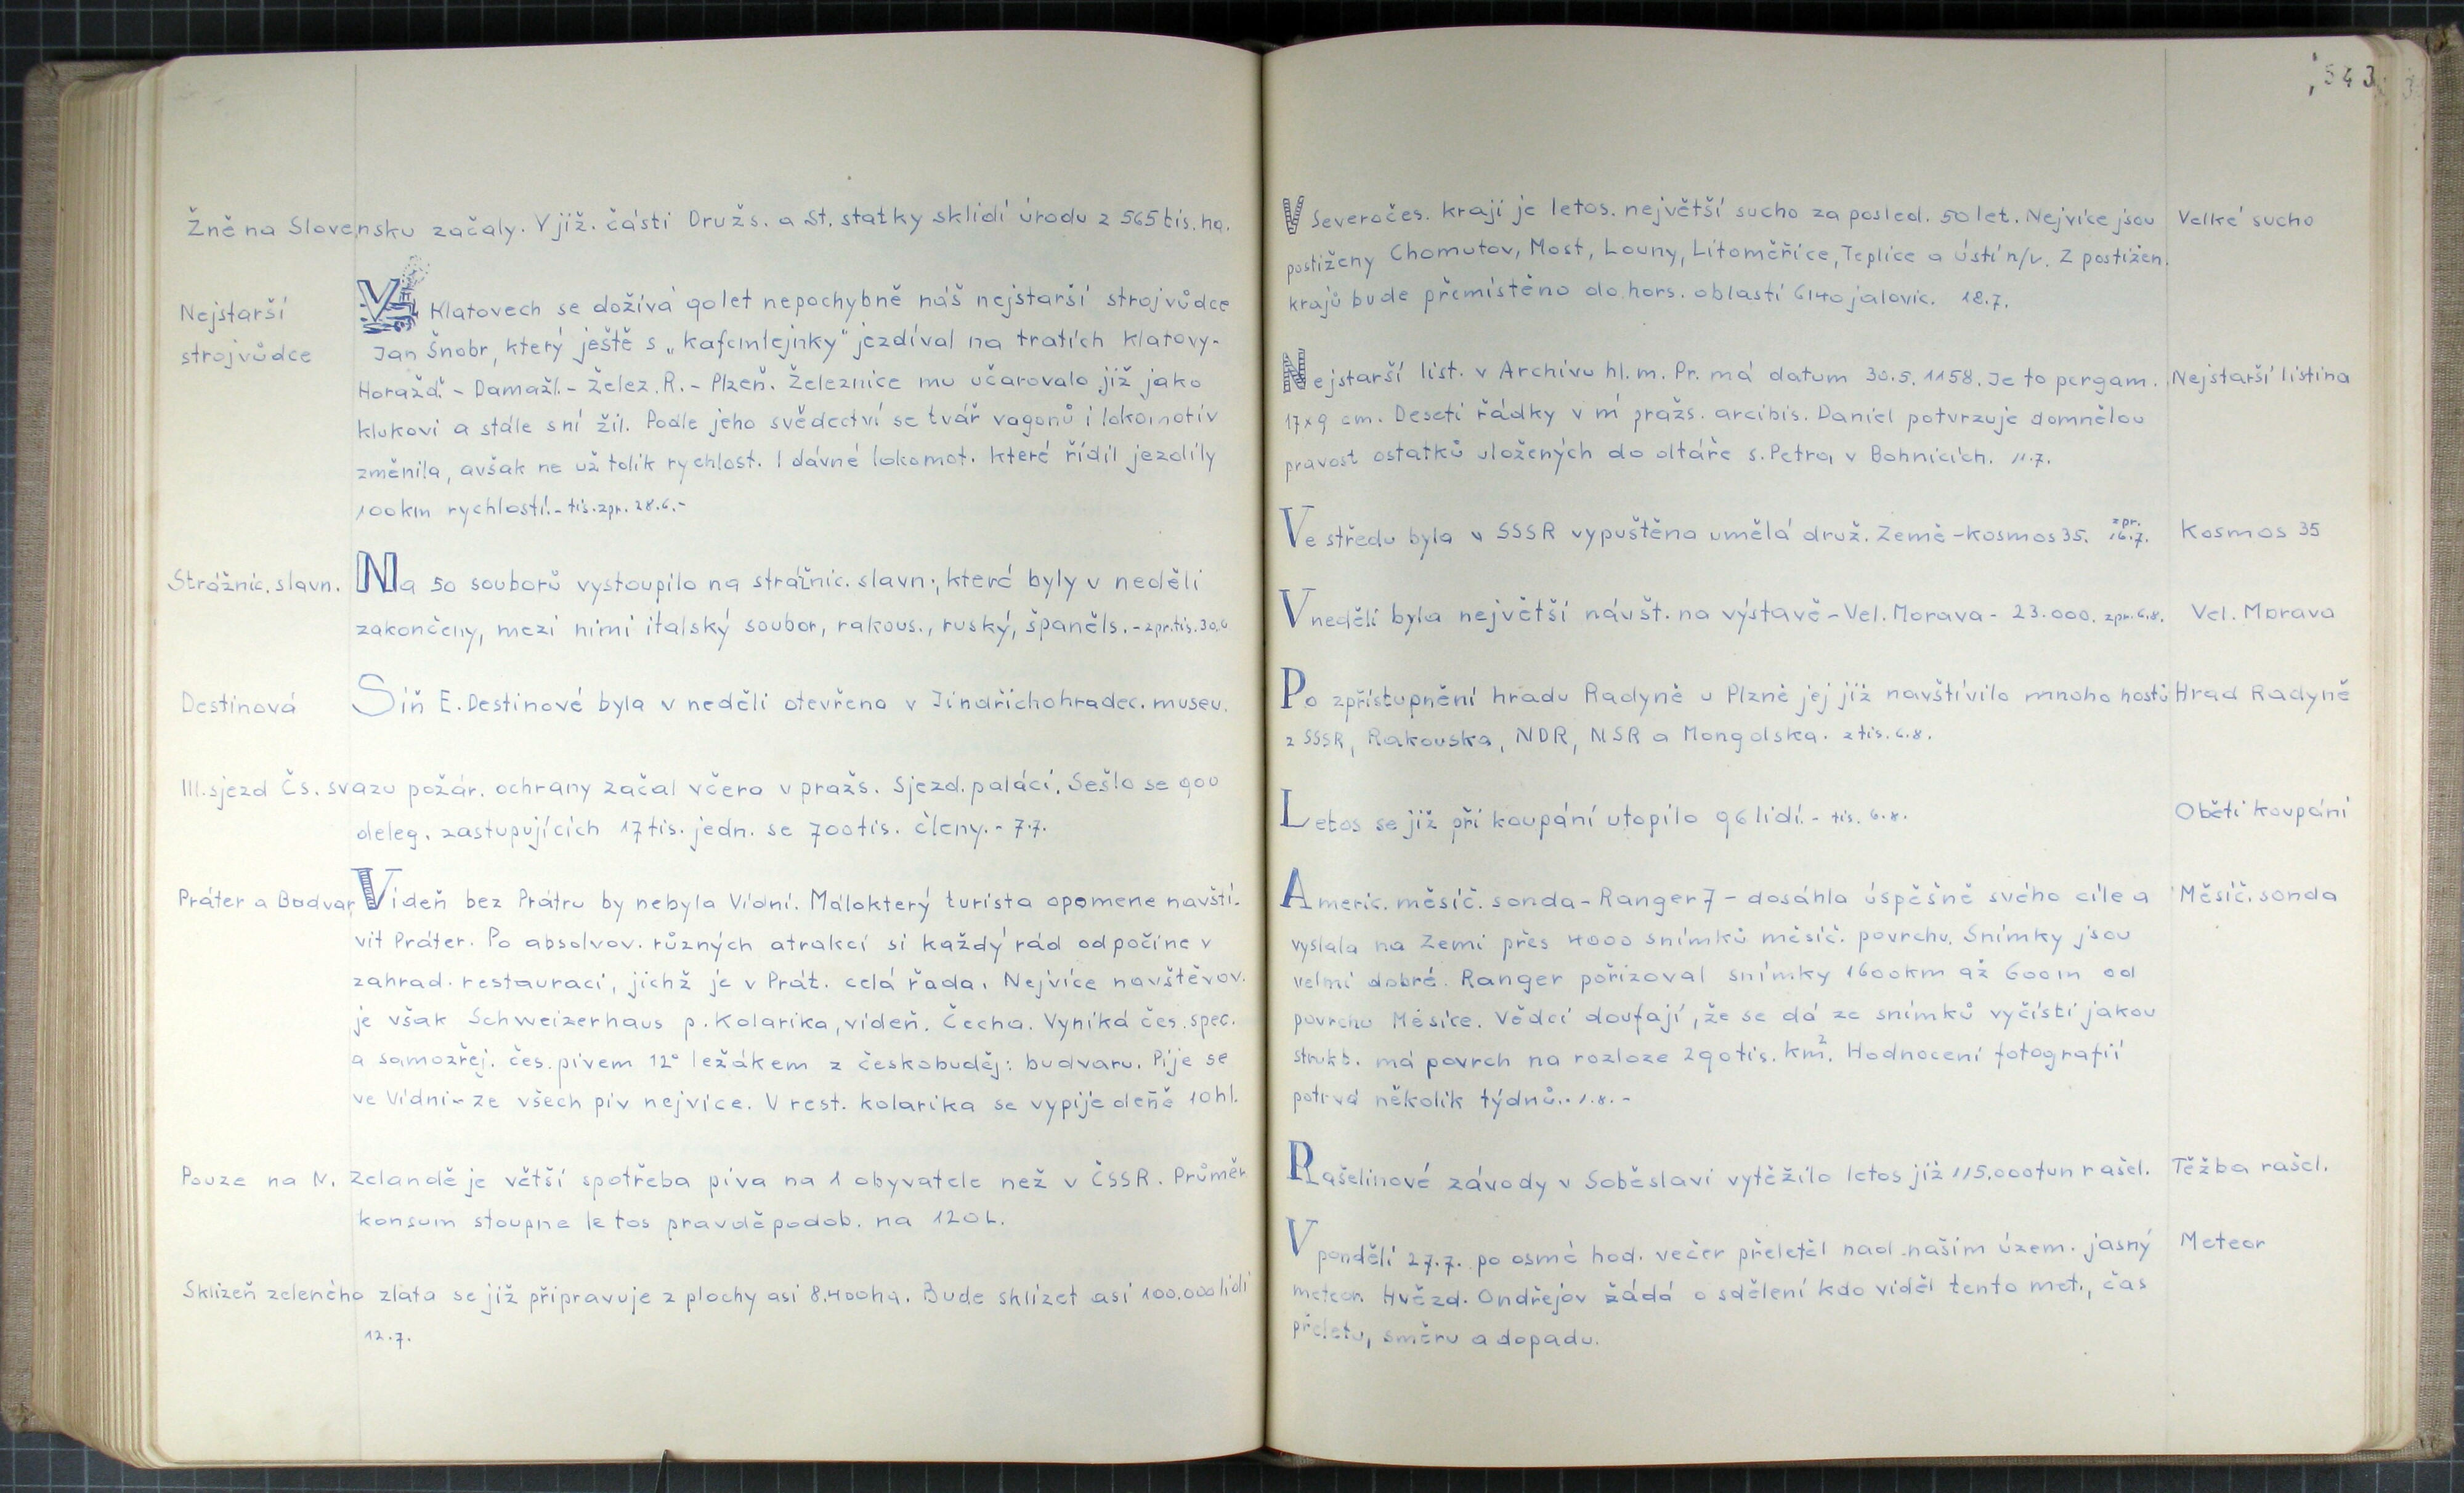 Žně na Slovensku začaly. V již. části Družs. a St. statky sklidí úrodu z 565 tis. ha.
Nejstarší
strojvůdce
V Klatovech se dožívá 90 let nepochybně náš nejstarší strojvůdce
Jan Šnobr, který ještě s „kafemlejnky" jezdíval na tratích Klatovy-
Horažď. - Damažl. - Želez. R. - Plzeň. Železnice mu učarovala již jako
klukovi a stále s ní žil. Podle jeho svědectví se tvář vagonů i lokomotiv
změnila, avšak ne už tolik rychlost. I dávné lokomot. které řídil jezdily
100km rychlostí. - tis. zpr. 28.6.-
Strážnic. slavn.
Na 50 souborů vystoupilo na strážnic. slavn., které byly v neděli
zakončeny, mezi nimi italský soubor, rakous., ruský, španěls. - zpr. tis. 30.6
Destinová
Síň E. Destinové byla v neděli otevřena v Jindřichohradec. museu.
III. sjezd Čs. svazu požár. ochrany začal včera v pražs. Sjezd. paláci. Sešlo se 900
deleg. zastupujících 17 tis. jedn. se 700 tis. členy. - 7.7.
Práter a Budvar
Vídeň bez Prátru by nebyla Vídní. Málokterý turista opomene navští-
vit Práter. Po absolvov. různých atrakcí si každý rád odpočine v
zahrad. restauraci, jichž je v Prát. celá řada. Nejvíce navštěvov.
je však Schweizerhaus p. Kolarika, vídeň. Čecha. Vyniká čes. spec.
a samozřej. čes. pivem 12° ležákem z českobuděj: budvaru. Pije se
ve Vídni - ze všech piv nejvíce. V rest. kolarika se vypije deňě 10 hl.
Pouze na N. Zelandě je větší spotřeba piva na 1 obyvatele než v ČSSR. Průměr
konsum stoupne letos pravděpodob. na 120 L.
Sklizeň zeleného zlata se již připravuje z plochy asi 8.400 ha. Bude sklízet asi 100.000 lidí
12.7.
543
V Severočes. kraji je letos. největší sucho za posled. 50 let. Nejvíce jsou
postiženy Chomutov, Most, Louny, Litoměřice, Teplice a Ústí n/L. Z postižen.
krajů bude přemístěno do hors. oblastí 6140 jalovic. 18.7.
Velké sucho
Nejstarší list. v Archivu hl. m. Pr. má datum 30.5. 1158. Je to pergam.
17x9 cm. Deseti řádky v ní pražs. arcibis. Daniel potvrzuje domnělou
pravost ostatků uložených do oltáře s. Petra v Bohnicích. 11.7.
Nejstarší listina
Ve středu byla v SSSR vypuštěna umělá druž. Země - kosmos 35. zpr. 16.7.
Kosmos 35
V neděli byla největší návšt. na výstavě - Vel. Morava - 23.000. zpr. 6.8.
Vel. Morava
Po zpřístupnění hradu Radyně u Plzně jej již navštívilo mnoho hostů
z SSSR, Rakouska, NDR, NSR a Mongolska. z tis. 6.8.
Hrad Radyně
Letos se již při koupání utopilo 96 lidí. - tis. 6.8.
Oběti koupání
Americ. měsíč. sonda - Ranger 7 - dosáhla úspěšně svého cíle a
vyslala na Zemi přes 4000 snímků měsíč. povrchu. Snímky jsou
velmi dobré. Ranger pořizoval snímky 1600km až 600m od
povrchu Měsíce. Vědci doufají, že se dá ze snímků vyčísti jakou
strukt. má povrch na rozloze 290 tis. km². Hodnocení fotografií
potrvá několik týdnů. - 1.8. -
Měsíč. sonda
Rašelinové závody v Soběslavi vytěžilo letos již 115.000 tun rašel.
Těžba rašel.
V pondělí 27.7. po osmé hod. večer přeletěl nad naším územ. jasný
meteor. Hvězd. Ondřejov žádá o sdělení kdo viděl tento met., čas
přeletu, směru a dopadu.
Meteor